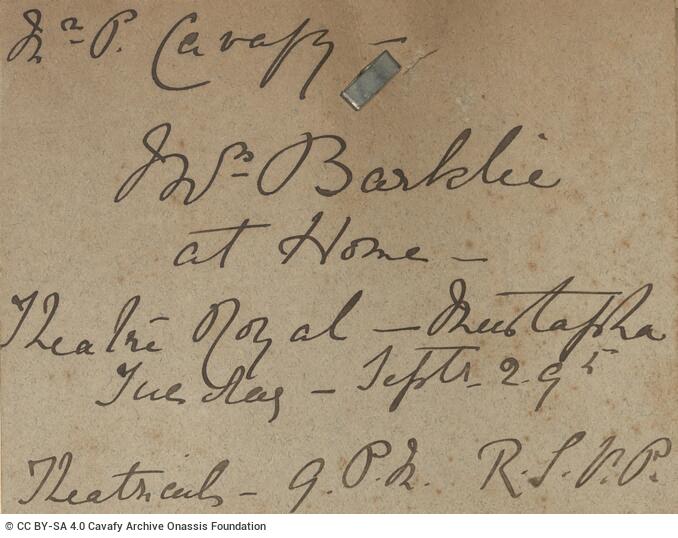 Mr P. Cavafy –
Mrs Barklie
at Home –
Theatre Royal – Mustapha
Tuesday – Septr. 29th
Theatricals – 9. P.M. R.S.V.P.
© CC BY-SA 4.0 Cavafy Archive Onassis Foundation